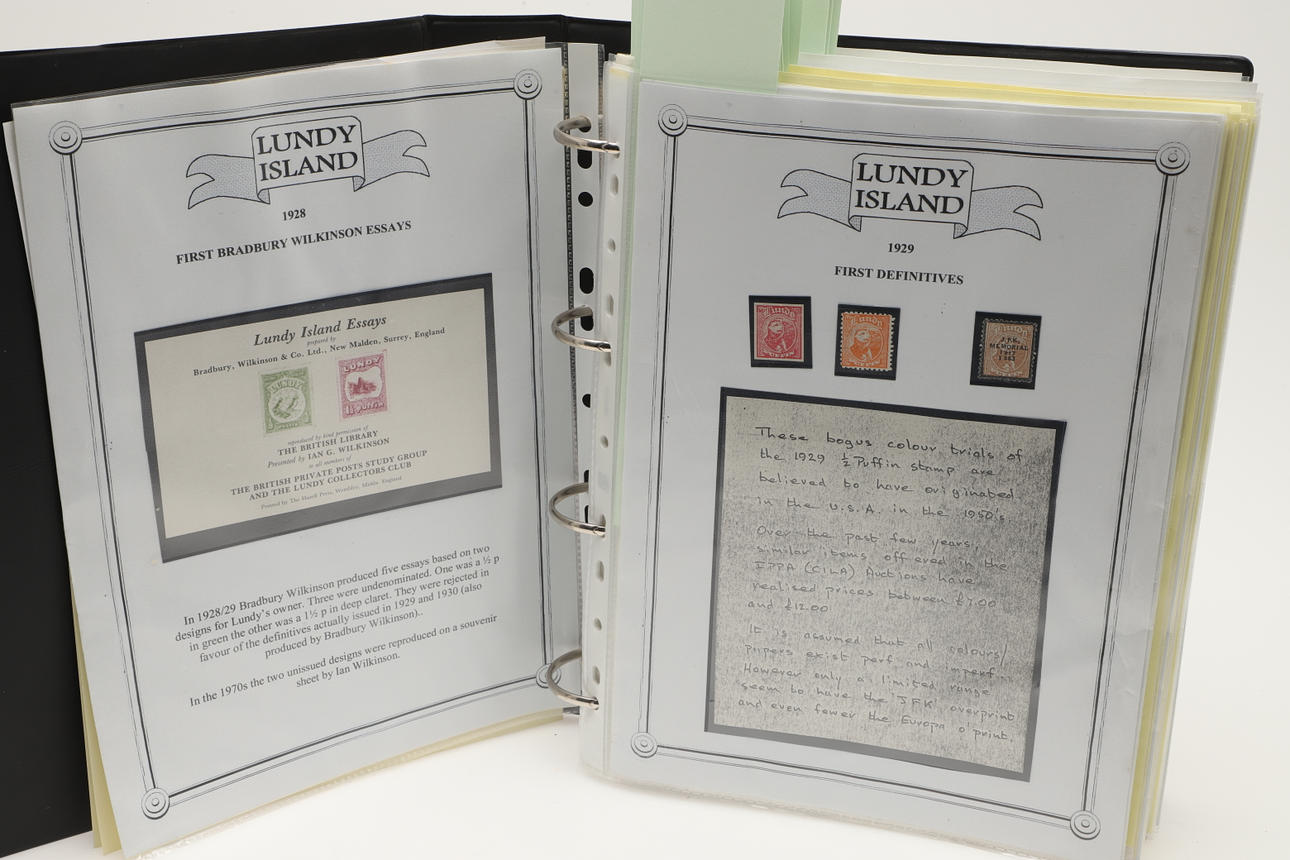 LUNDY
ISLAND
1928
FIRST BRADBURY WILKINSON ESSAYS
Lundy Island Essays
prepared by
Bradbury, Wilkinson & Co. Ltd., New Malden, Surrey, England
LUNDY
LUNDY
1½ Puffin
reproduced by kind permission of
THE BRITISH LIBRARY
Presented by IAN G. WILKINSON
to all members of
THE BRITISH PRIVATE POSTS STUDY GROUP
AND THE LUNDY COLLECTORS CLUB
Printed by The Press, Wembley, England
In 1928/29 Bradbury Wilkinson produced five essays based on two
designs for Lundy's owner. Three were undenominated. One was a ½ p
in green the other was a 1½ p in deep claret. They were rejected in
favour of the definitives actually issued in 1929 and 1930 (also
produced by Bradbury Wilkinson)..
In the 1970s the two unissued designs were reproduced on a souvenir
sheet by Ian Wilkinson.
LUNDY
ISLAND
1929
FIRST DEFINITIVES
Lundy
PUFFIN
Lundy
PUFFIN
Lundy
J.F.K.
MEMORIAL
1917
1963
These bogus colour trials of
the 1929 ½ Puffin stamp are
believed to have originated
in the U.S.A. in the 1950's.
Over the past few years,
similar items offered in the
IPPA (CILA) Auctions have
realised prices between £7.00
and £12.00
It is assumed that all colours/
papers exist perf and imperf.
However only a limited range
seem to have the 'JFK' overprint
and even fewer the Europa o'print.